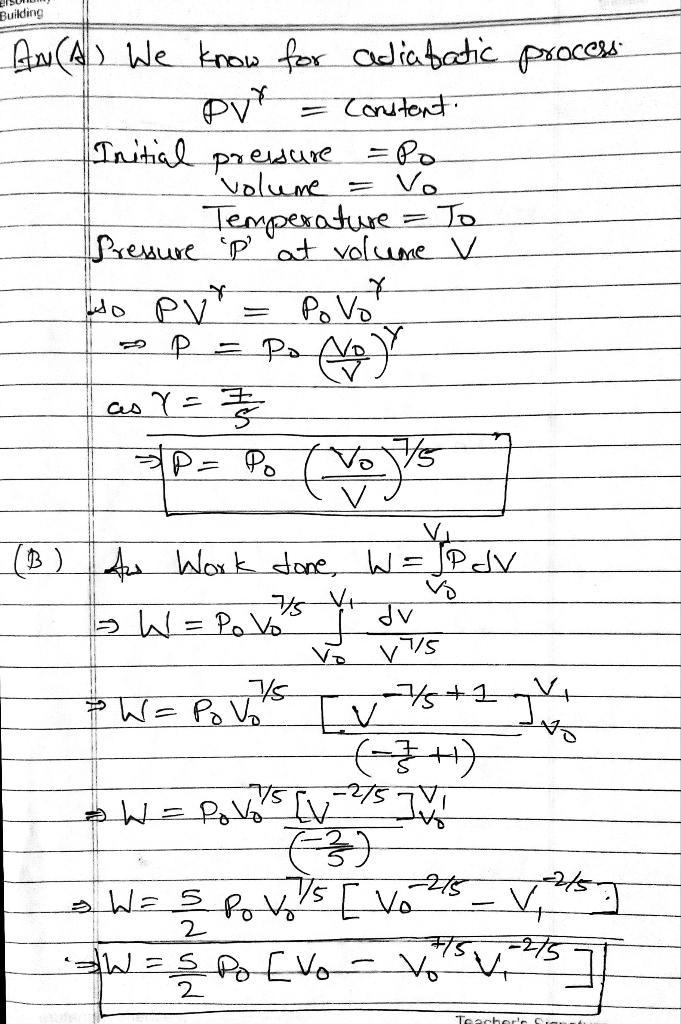 Building
Ans(A) We know for adiabatic process.
PV^γ = Constent.
Initial pressure = P₀
volume = V₀
Temperature = T₀
Pressure 'P' at volume V
so PV^γ = P₀V₀^γ
⇒ P = P₀ (V₀/V)^γ
as γ = 7/5
⇒ P = P₀ (V₀/V)^7/5
(B) As Work done, W = ∫_V₀^V₁ P dV
⇒ W = P₀ V₀^7/5 ∫_V₀^V₁ dv/V^7/5
⇒ W = P₀ V₀^7/5 [V^-7/5+1]_V₀^V₁/(-7/5+1)
⇒ W = P₀V₀^7/5 [V^-2/5]_V₀^V₁/(-2/5)
⇒ W = 5/2 P₀ V₀^7/5 [V₀^-2/5 - V₁^-2/5]
⇒ W = 5/2 P₀ [V₀ - V₀^7/5 V₁^-2/5]